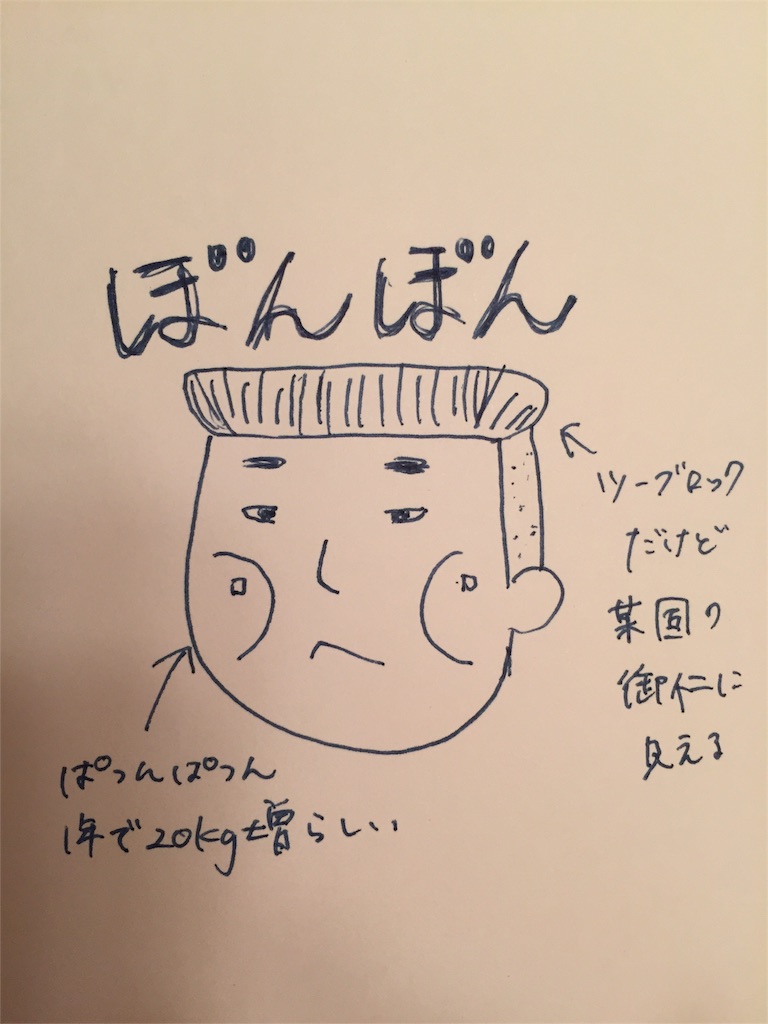 ぼんぼん
ツーブロック
だけど
某国の
御仁に
見える
ぱつんぱつん
1年で20kg増らしい